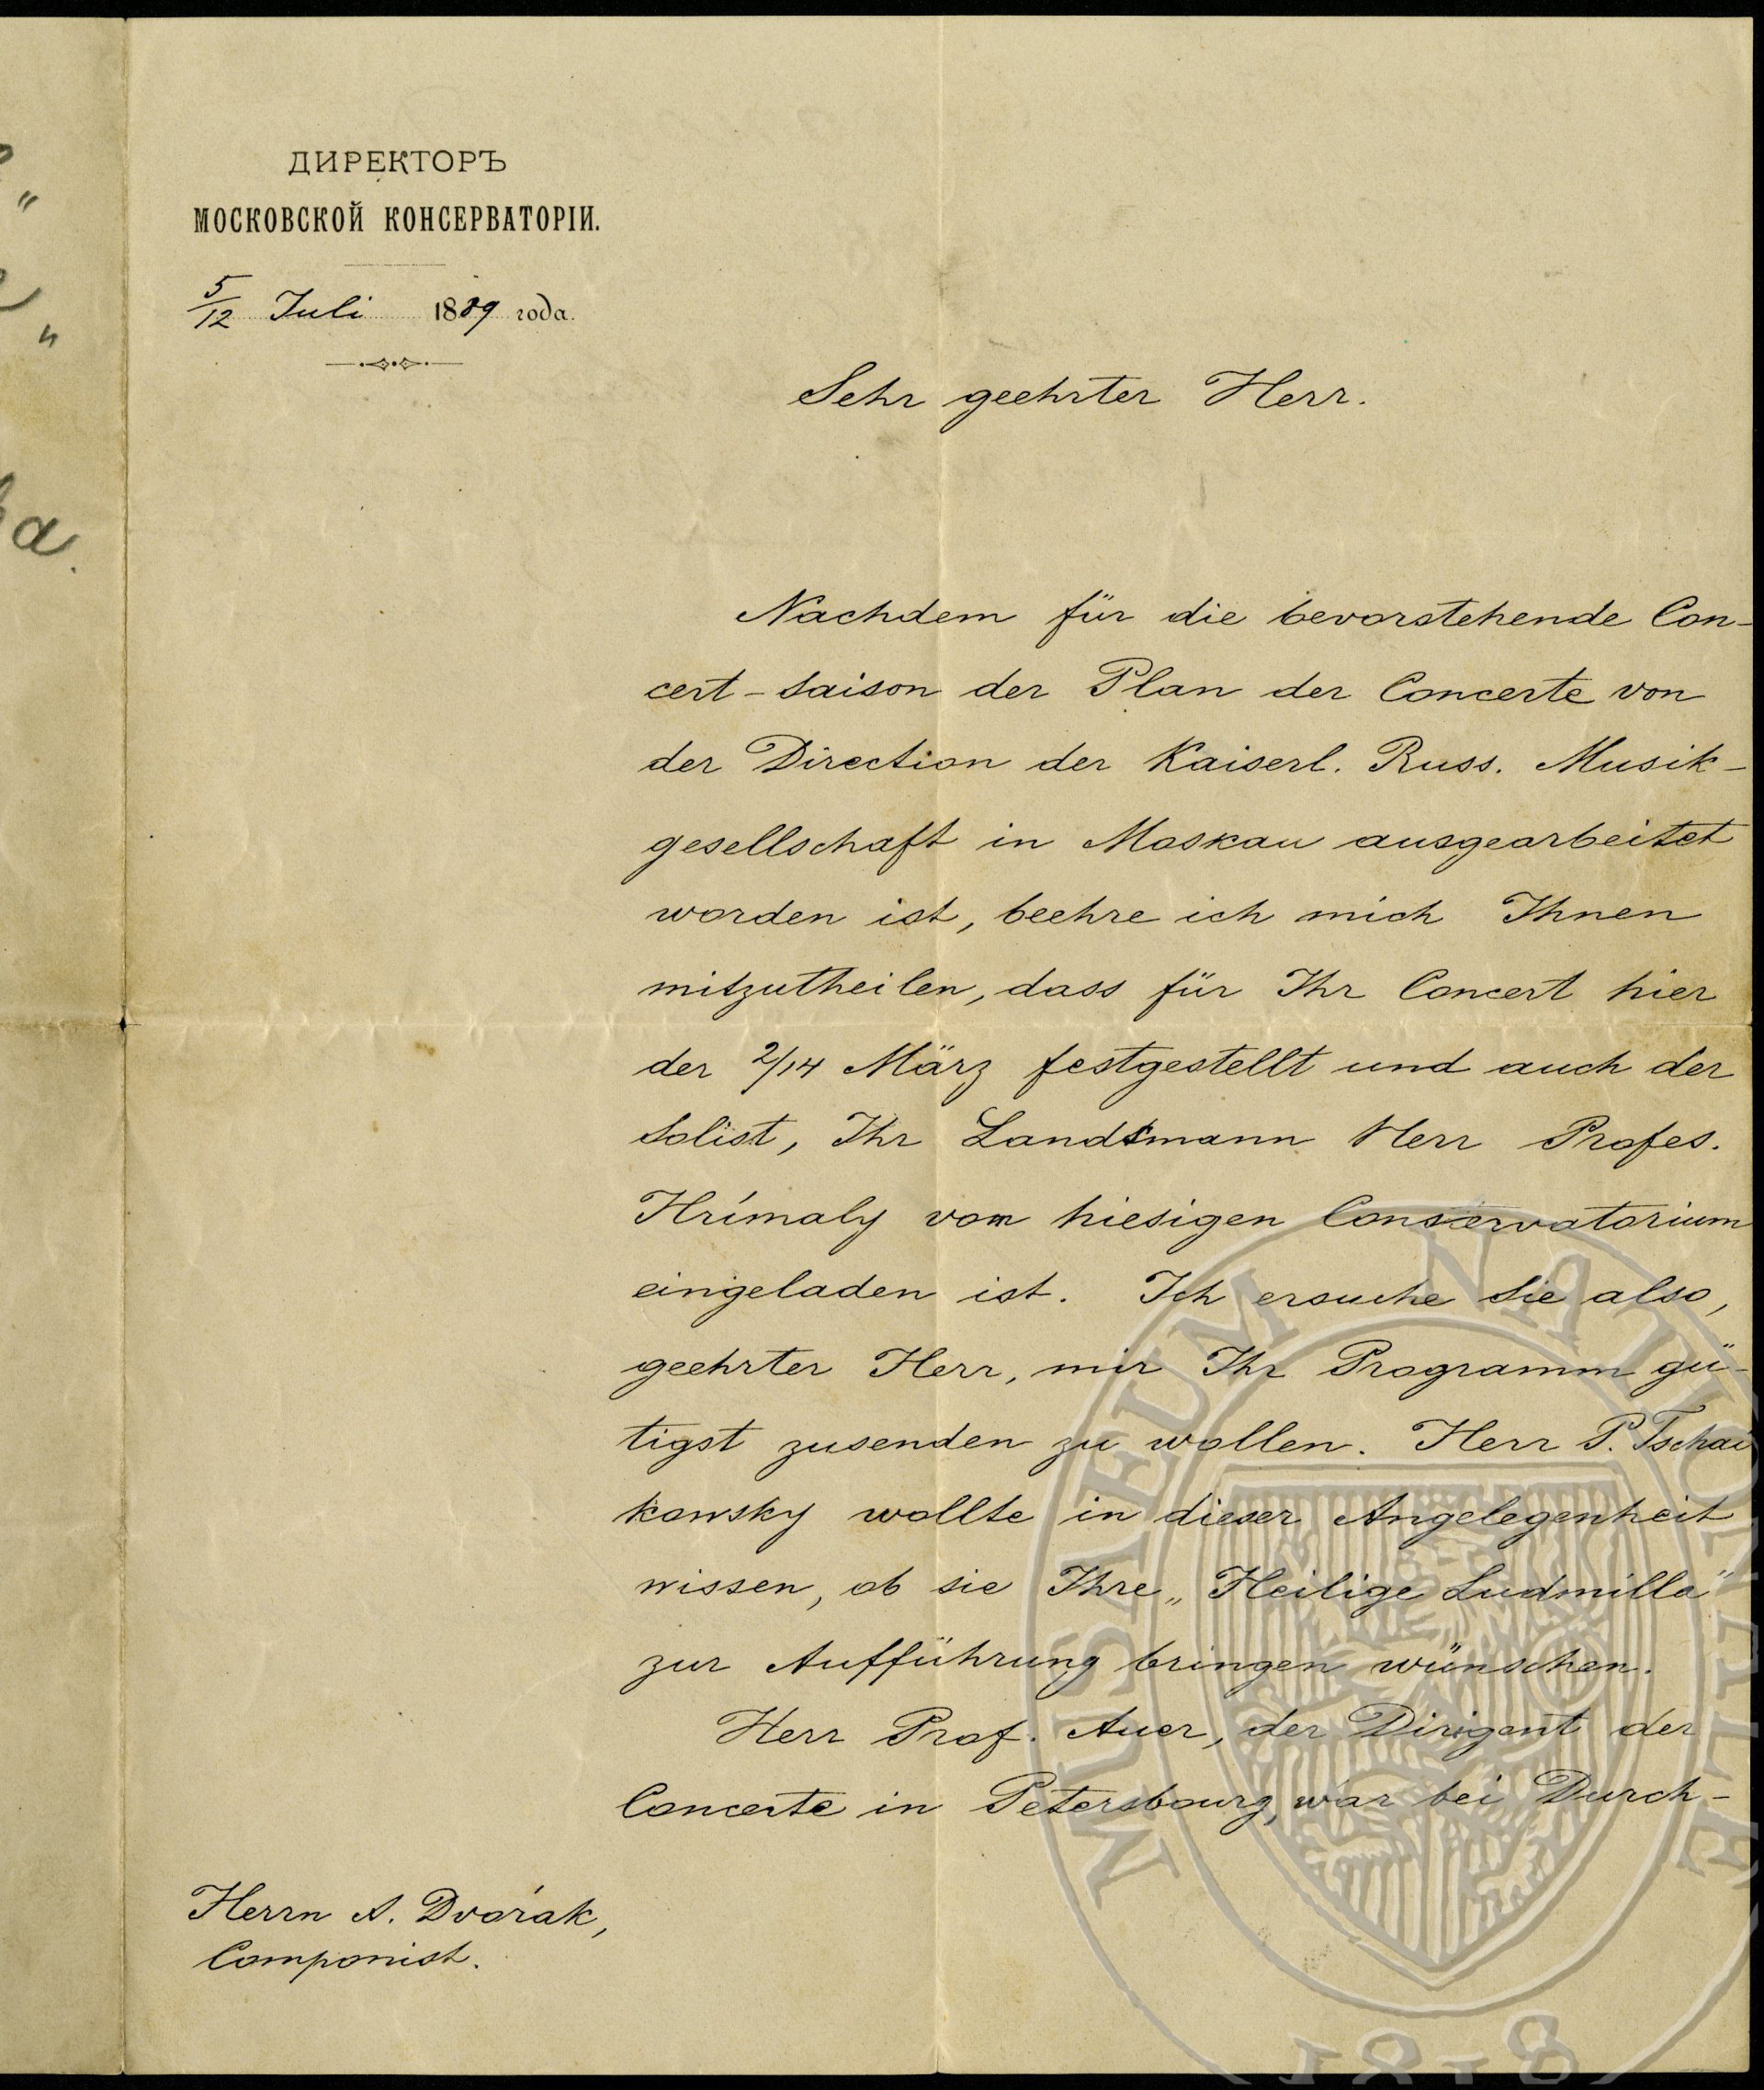 ДИРЕКТОРЪ
МОСКОВСКОЙ КОНСЕРВАТОРІИ.
5/12 Juli 1889 года.
Sehr geehrter Herr.
Nachdem für die bevorstehende Con-
cert-Saison der Plan der Concerte von
der Direction der Kaiserl. Russ. Musik-
gesellschaft in Moskau ausgearbeitet
worden ist, beehre ich mich Ihnen
mitzutheilen, dass für Ihr Concert hier
der 2/14 März festgestellt und auch der
Solist, Ihr Landsmann Herr Profes.
Hrímaly vom hiesigen Conservatorium
eingeladen ist. Ich ersuche Sie also,
geehrter Herr, mir Ihr Programm gü-
tigst zusenden zu wollen. Herr P. Tschai
kowsky wollte in dieser Angelegenheit
wissen, ob sie Ihre „Heilige Ludmilla"
zur Aufführung bringen wünschen.
Herr Prof. Auer, der Dirigent der
Concerte in Petersbourg, war bei Durch-
Herrn A. Dvořák,
Componist.
MUSAEUM NATIONALE
1818